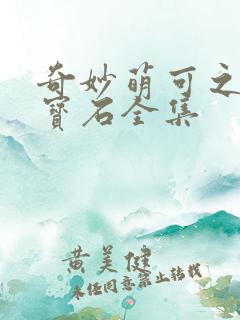 奇妙萌可之
寶石全集
黄美健
未经同意禁止转载